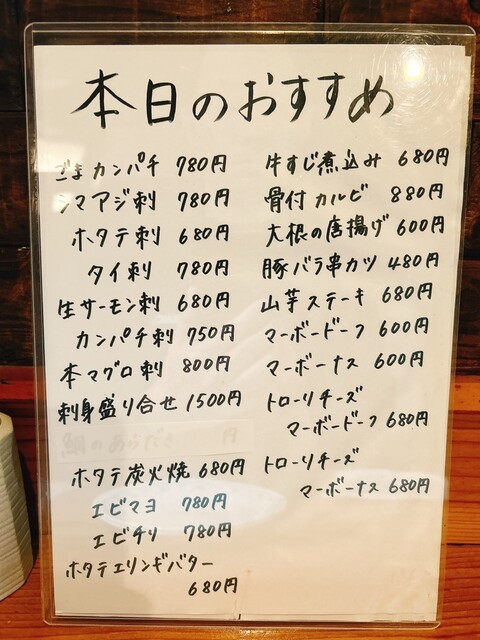 本日のおすすめ
ごまカンパチ 780円
シマアジ刺 780円
ホタテ刺 680円
タイ刺 780円
生サーモン刺 680円
カンパチ刺 750円
本マグロ刺 800円
刺身盛り合せ 1500円
鯛のあらだき 円
ホタテ炭火焼 680円
エビマヨ 780円
エビチリ 780円
ホタテエリンギバター
680円
牛すじ煮込み 680円
骨付カルビ 880円
大根の唐揚げ 600円
豚バラ串カツ 480円
山芋ステーキ 680円
マーボードーフ 600円
マーボーナス 600円
トローリチーズ
マーボードーフ 680円
トローリチーズ
マーボーナス 680円